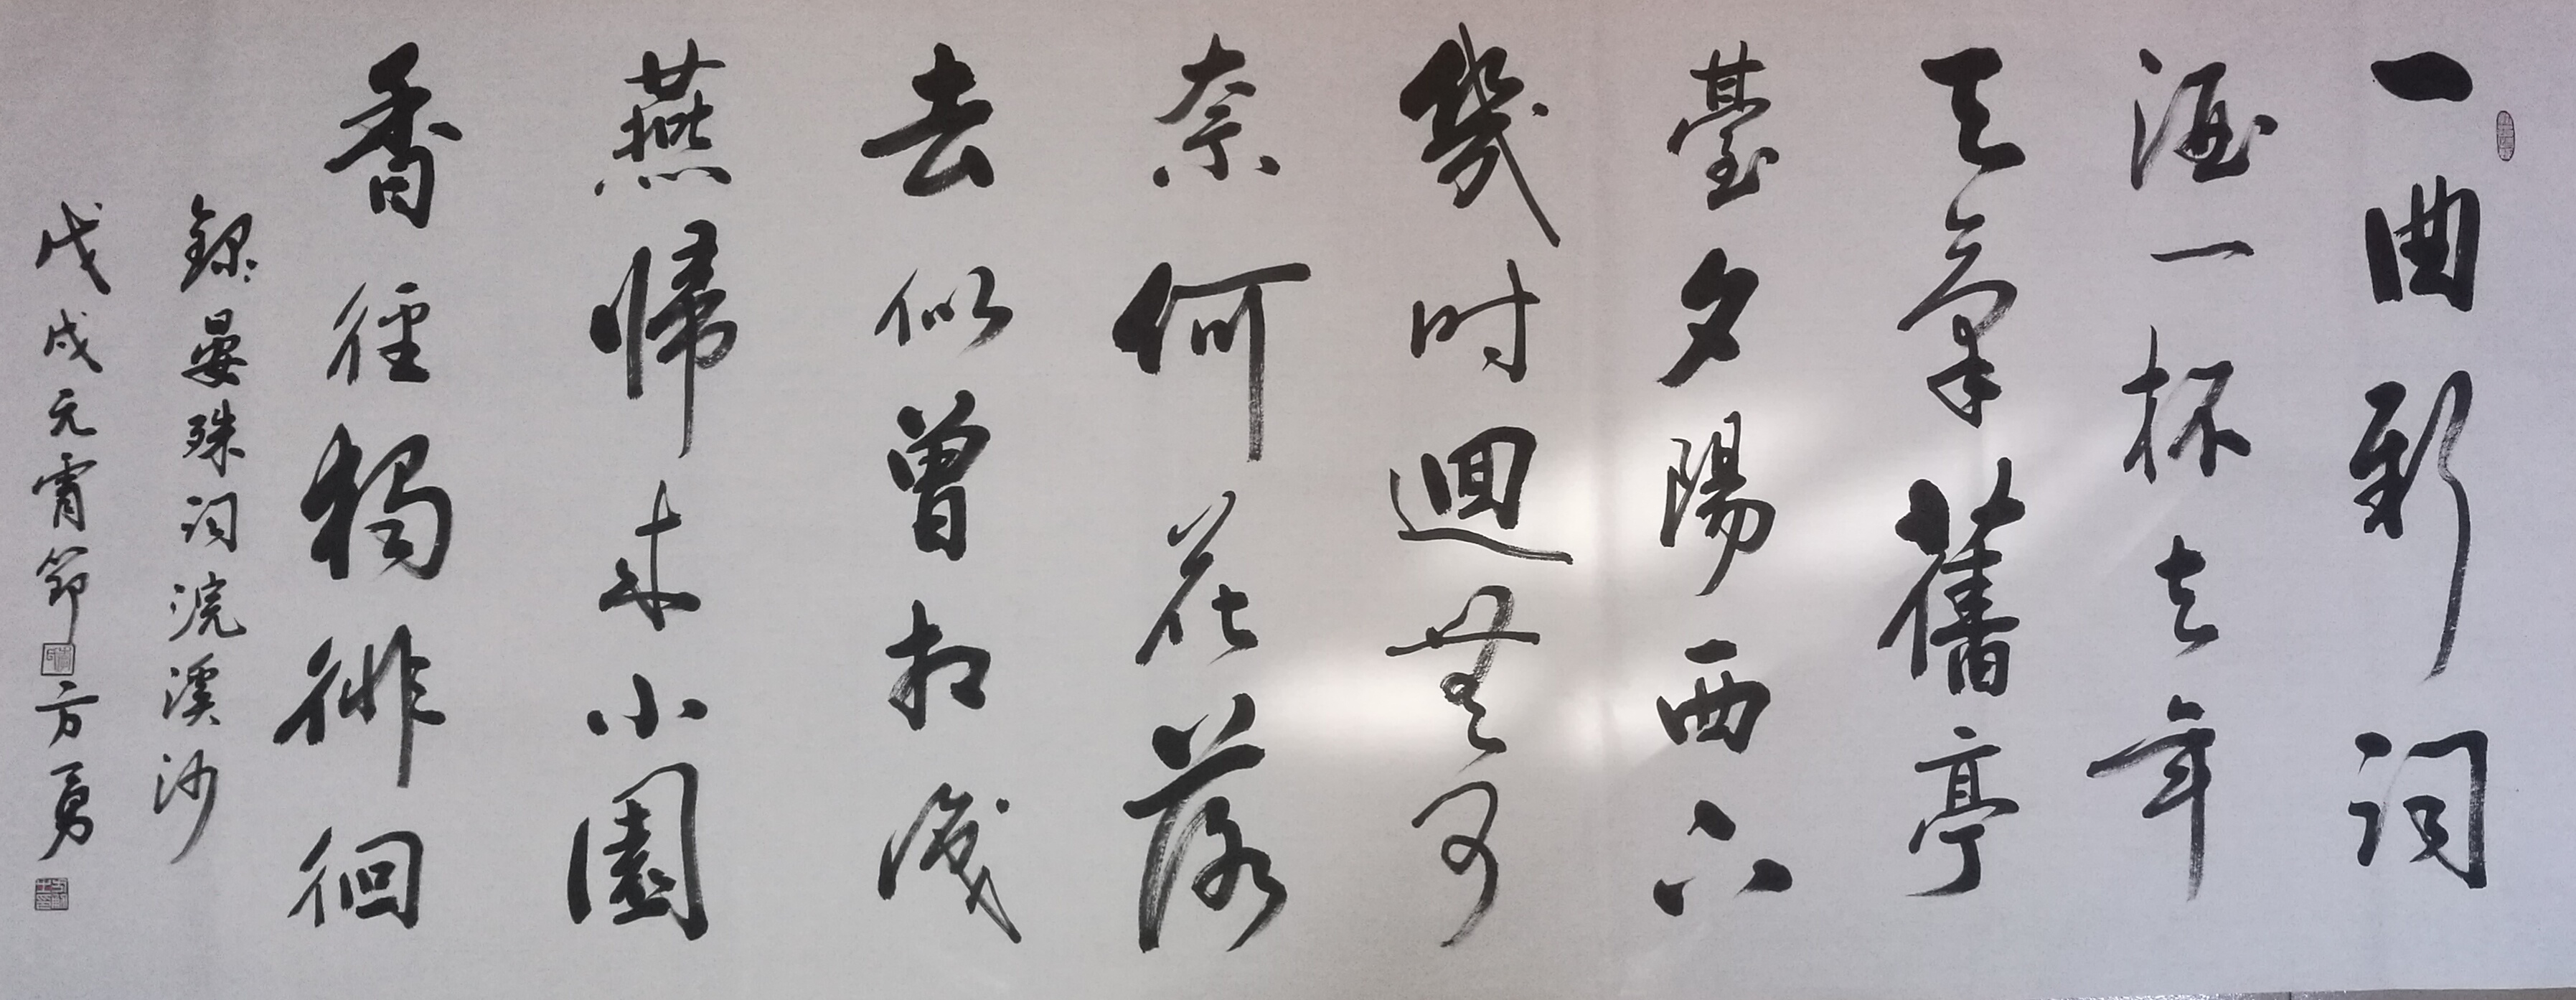 一曲新詞
酒一杯去年
天氣舊亭
臺夕陽西下
幾时迴無可
奈何花落
去似曾相識
燕帰来小園
香徑獨徘徊
錄晏殊詞浣溪沙
戊戌元宵節方勇